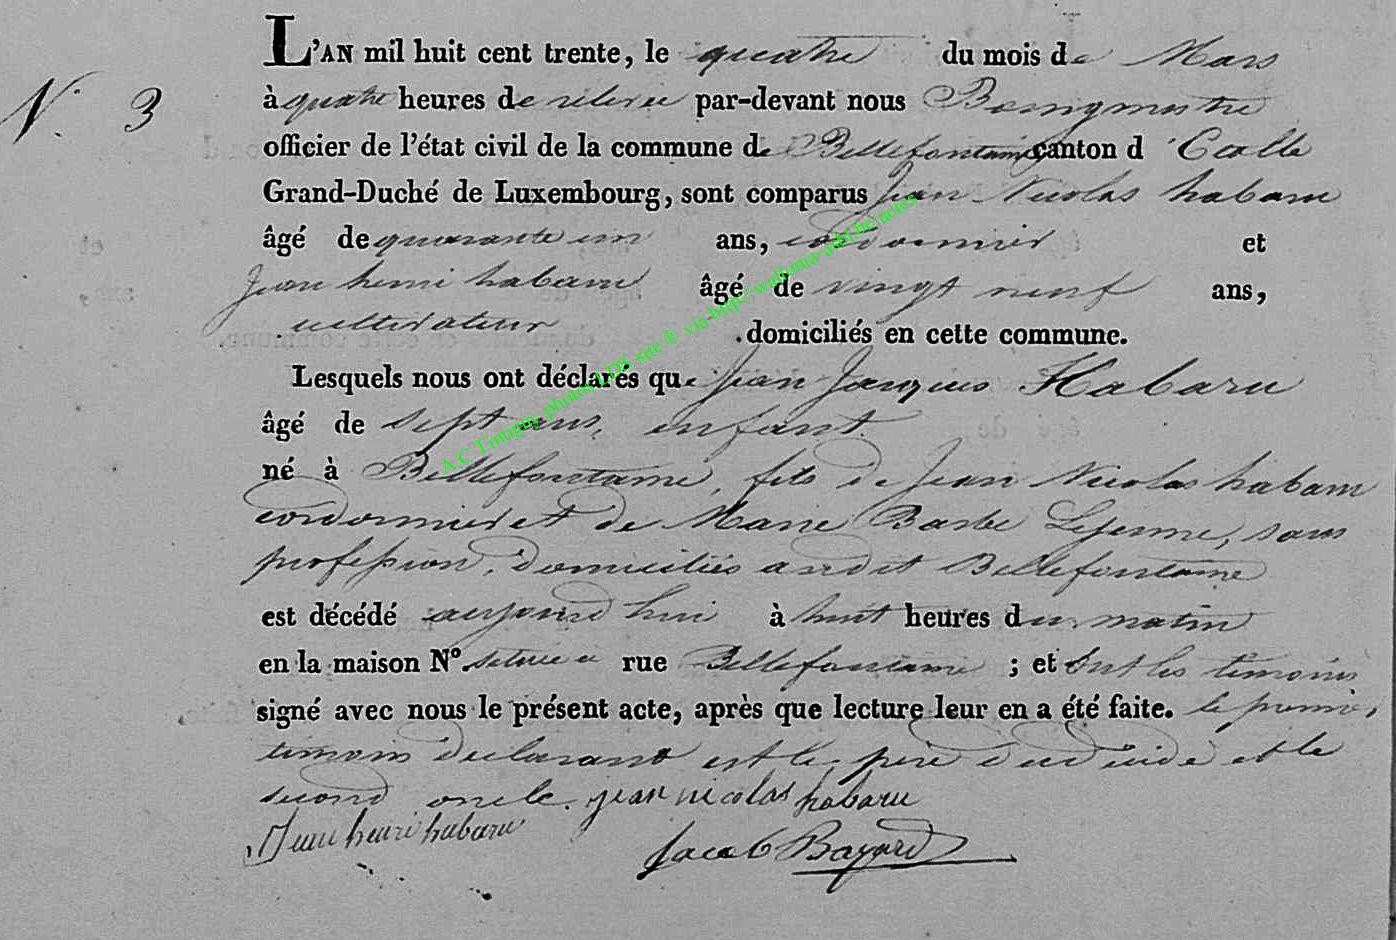 L'AN mil huit cent trente, le quatre du mois de Mars
N. 3
à quatre heures de relevée par-devant nous Bourgmestre
officier de l'état civil de la commune de Bellefontaine canton d' Etalle
Grand-Duché de Luxembourg, sont comparus Jean Nicolas habaru
âgé de quarante un ans, cordonnier et
Jean henri habaru âgé de vingt neuf ans,
cultivateur domiciliés en cette commune.
Lesquels nous ont déclarés que Jean Jacques Habaru
âgé de sept ans, enfant
né à Bellefontaine, fils de Jean Nicolas habaru
cordonnier et de Marie Barbe Lejeune, sans
profession, domiciliés audit Bellefontaine
est décédé aujourd'hui à huit heures du matin
en la maison N.º située a rue Bellefontaine ; et ont les témoins
signé avec nous le présent acte, après que lecture leur en a été faite. le premier
témoin déclarant est le père du décédé et le
second oncle. jean nicolas habaru
Jean henri habaru
Jacob Bayard
A.C Tintigny photos LDS site ® via-http://wallonia-asbl.be/actes